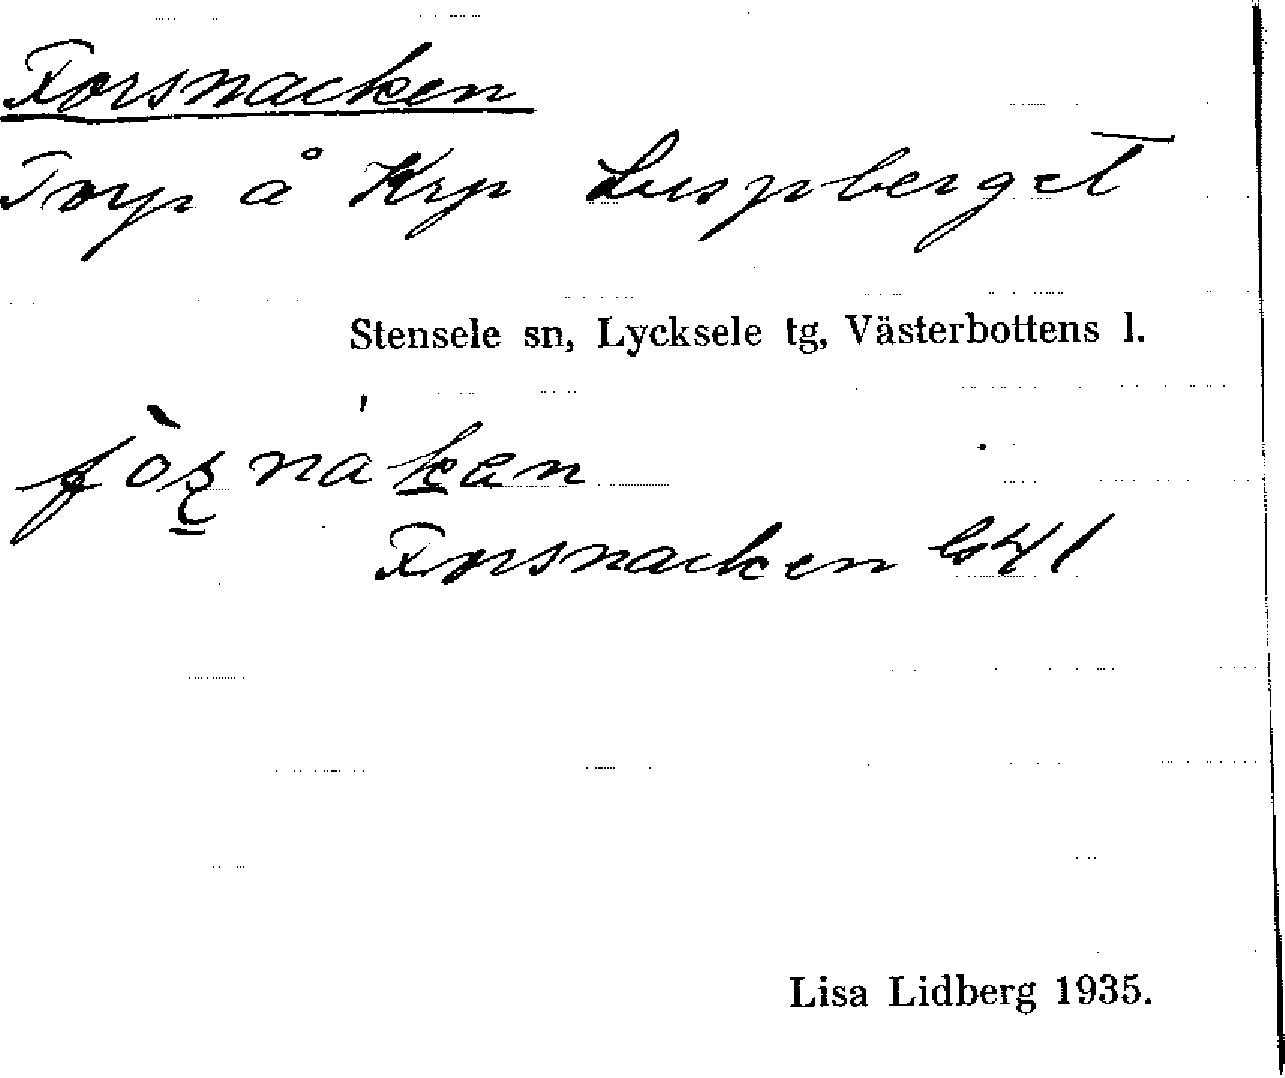 Forsnacken
Torp å Krp Luspberget
Stensele sn, Lycksele tg, Västerbottens l.
Forsnacken
Lisa Lidberg 1935.